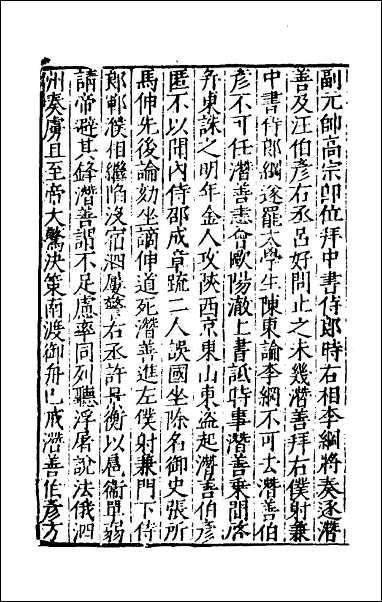 副元帥高宗即位拜中書侍郎時右相李綱將奏逐潛
善及汪伯彥右丞呂好問止之未幾潛善拜右僕射兼
中書侍郎綱遂罷太學生陳東論李綱不可去潛善伯
彥不可任潛善恚會歐陽澈上書詆時事潛善乗間啓
并東誅之明年金人攻陝西京東山東盗起潛善伯彥
匿不以聞内侍邵成章䟽二人誤國坐除名御史張所
馬伸先後論劾坐謫伸道死潛善進左僕射兼門下侍
郎鄆濮相繼陷没宿泗屢警右丞許景衡以扈衞單弱
請帝避其鋒潛善謂不足慮率同列聽浮屠說法俄泗
州奏虜且至帝大驚決策南渡御舟已戒潛善伯彥方